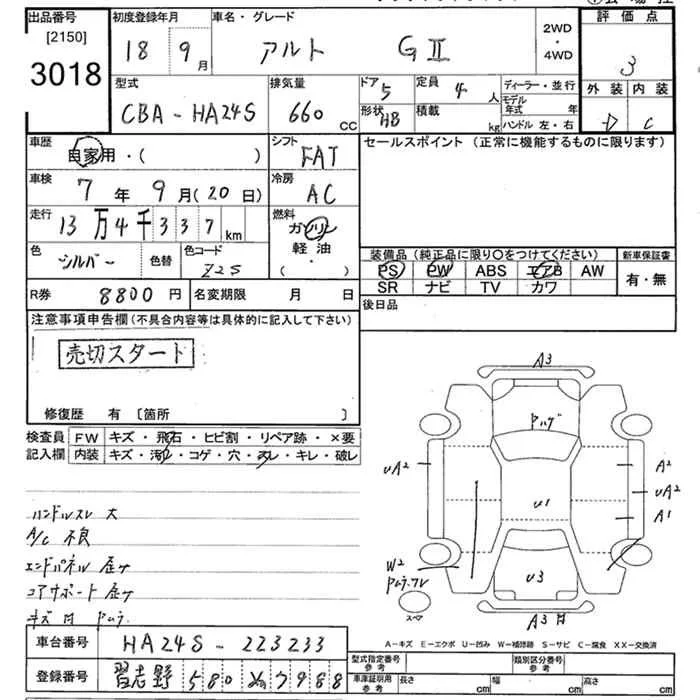 出品番号
[2150]
3018
初度登録年月
18 9月
車名・グレード
アルト GⅡ
2WD
・
4WD
評価点
3
外装 内装
D C
型式
CBA-HA24S
排気量
660 CC
ドア 5
形状 HB
定員 4 人
積載 kg
ディーラー・並行
モデル年式 年
ハンドル 左・右
車歴
自家用・( )
シフト
FAT
セールスポイント(正常に機能するものに限ります)
車検
7年9月(20日)
冷房
AC
走行
13万4千337km
燃料
ガソリン
軽油・
( )
色
シルバー
色替
色コード
Z2S
装備品(純正品に限り○をつけてください)
PS PW ABS エアB AW
SR ナビ TV カワ
新車保証書
有・無
R券 8800円
名変期限 月 日
後日品
注意事項申告欄(不具合内容等は具体的に記入して下さい)
売切スタート
修復歴 有〔箇所 〕
検査員記入欄
FW キズ・飛石・ヒビ割・リペア跡・×要
内装 キズ・汚レ・コゲ・穴・スレ・キレ・破レ
ハンドルスレ 大
A/C 不良
エンドパネル歪ケ
コアサポート歪ケ
A3
UA2
U1
A2
UA2
A1
W2
U3
A3
スペア
A-キズ E-エクボ U-凹み W-補修跡 S-サビ C-腐食 XX-交換済
車台番号
HA24S-223233
登録番号
習志野 580 ぬ 7988
型式指定番号
参考
類別区分番号
参考
車庫証明用
参考
長さ cm
幅 cm
高さ cm